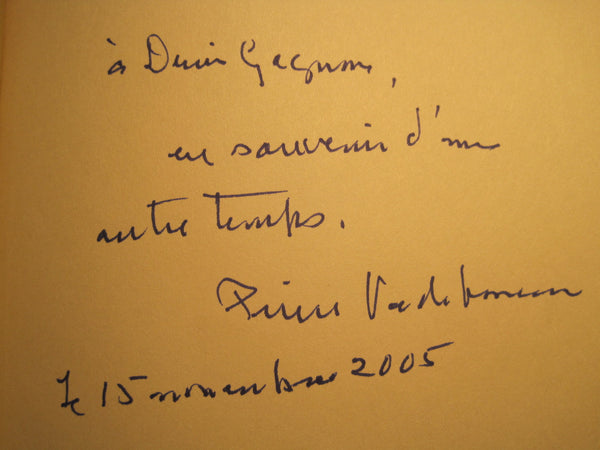 à Denis Gagnon,
en souvenir d'un
autre temps.
Pierre Vadeboncoeur
Le 15 novembre 2005